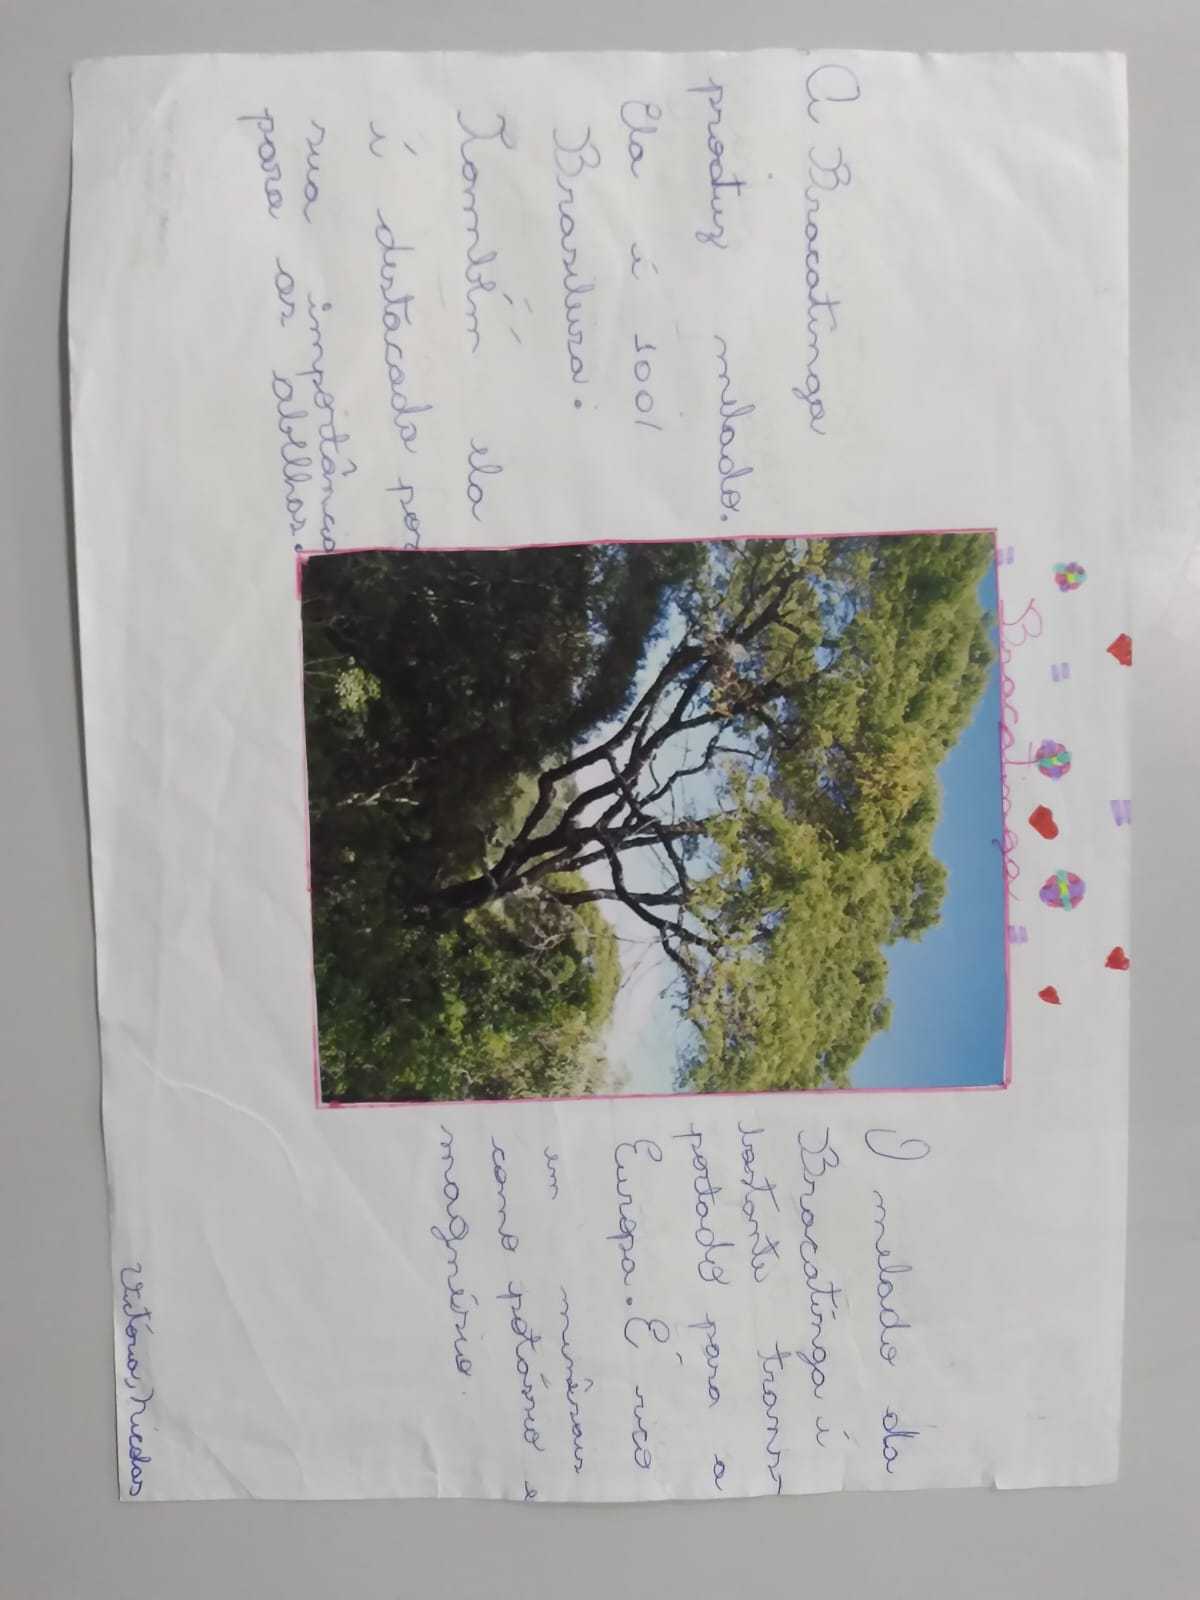 Bracatinga
A Bracatinga
produz melado.
Ela é 100%
Brasileira.
Também ela
é destacada por
sua importância
para as abelhas.
O melado da
Bracatinga é
bastante trans-
portado para a
Europa. É rico
em minêrais
como potássio e
magnésio.
Victória, Nicolas